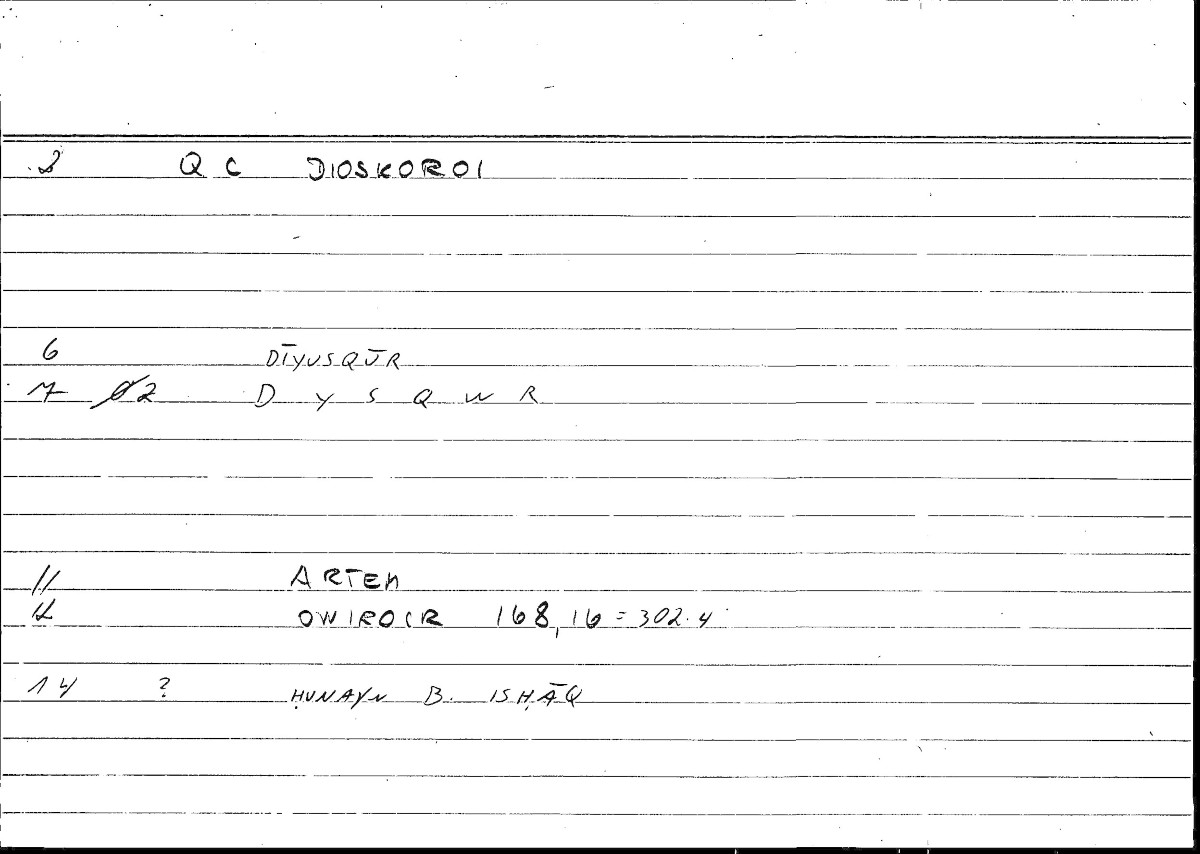 .2 QC DIOSKOROI
6 DĪYUSQŪR
7 02 D Y S Q W R
11 ARTEM
12 OWIROCR 168,16=302.4
14 ? ḤUNAYN B. ISḤĀQ